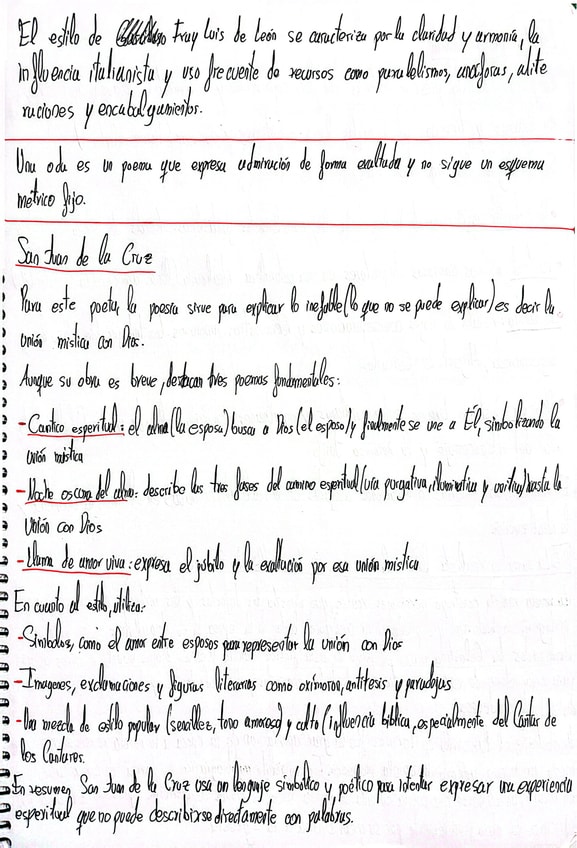 El estilo de Fray Luis de León se caracteriza por la claridad y armonía, la
influencia italianista y uso frecuente de recursos como paralelismos, anáforas, alite
raciones y encabalgamientos.
Una oda es un poema que expresa admiración de forma exaltada y no sigue un esquema
métrico fijo.
San Juan de la Cruz
Para este poeta, la poesía sirve para explicar lo inefable (lo que no se puede explicar) es decir la
unión mística con Dios.
Aunque su obra es breve, destacan tres poemas fundamentales:
-Cantico espiritual: el alma (la esposa) busca a Dios (el esposo) y finalmente se une a Él, simbolizando la
unión mística
-Noche oscura del alma: describe las tres fases del camino espiritual (vía purgativa, iluminativa y unitiva) hasta la
Unión con Dios
-Llama de amor viva: expresa el júbilo y la exaltación por esa unión mística
En cuanto al estilo, utiliza:
-Símbolos, como el amor entre esposos para representar la unión con Dios
-Imagenes, exclamaciones y figuras literarias como oxímoron, antítesis y paradojas
-Una mezcla de estilo popular (sencillez, tono amoroso) y culto (influencia bíblica, especialmente del Cantar de
los Cantares.
En resumen, San Juan de la Cruz usa un lenguaje simbólico y poético para intentar expresar una experiencia
esperitual que no puede describirse directamente con palabras.